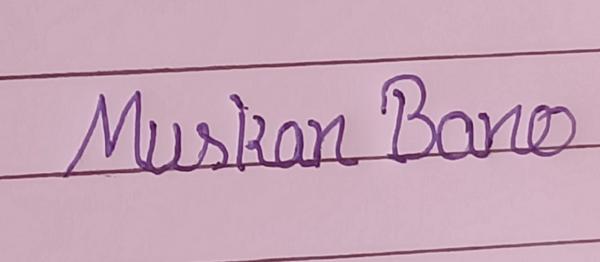 Muskan Bano